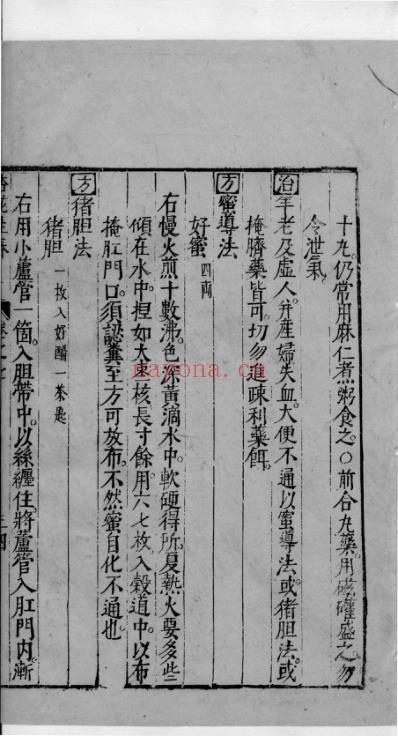 十丸。仍常用麻仁煮粥食之。○前合丸藥。用磁礶盛之。勿
令泄氣。
治年老及虛人。并產婦失血。大便不通。以蜜導法。或猪胆法。或
掩臍藥皆可。切勿進疎利藥餌。
方蜜導法
好蜜四両
右慢火煎十數沸。色深黃。滴水中。軟硬得所。夏熱火要多些。
傾在水中。捏如大棗核。長寸餘。用六七枚入穀道中。以布
掩肛門口。須認糞至方可放布。不然蜜自化不通也。
方猪胆法
猪胆一枚入好醋一茶匙
右用小蘆管一箇。入胆帶中。以絲纏住。將蘆管入肛門內。漸
nayona.cn